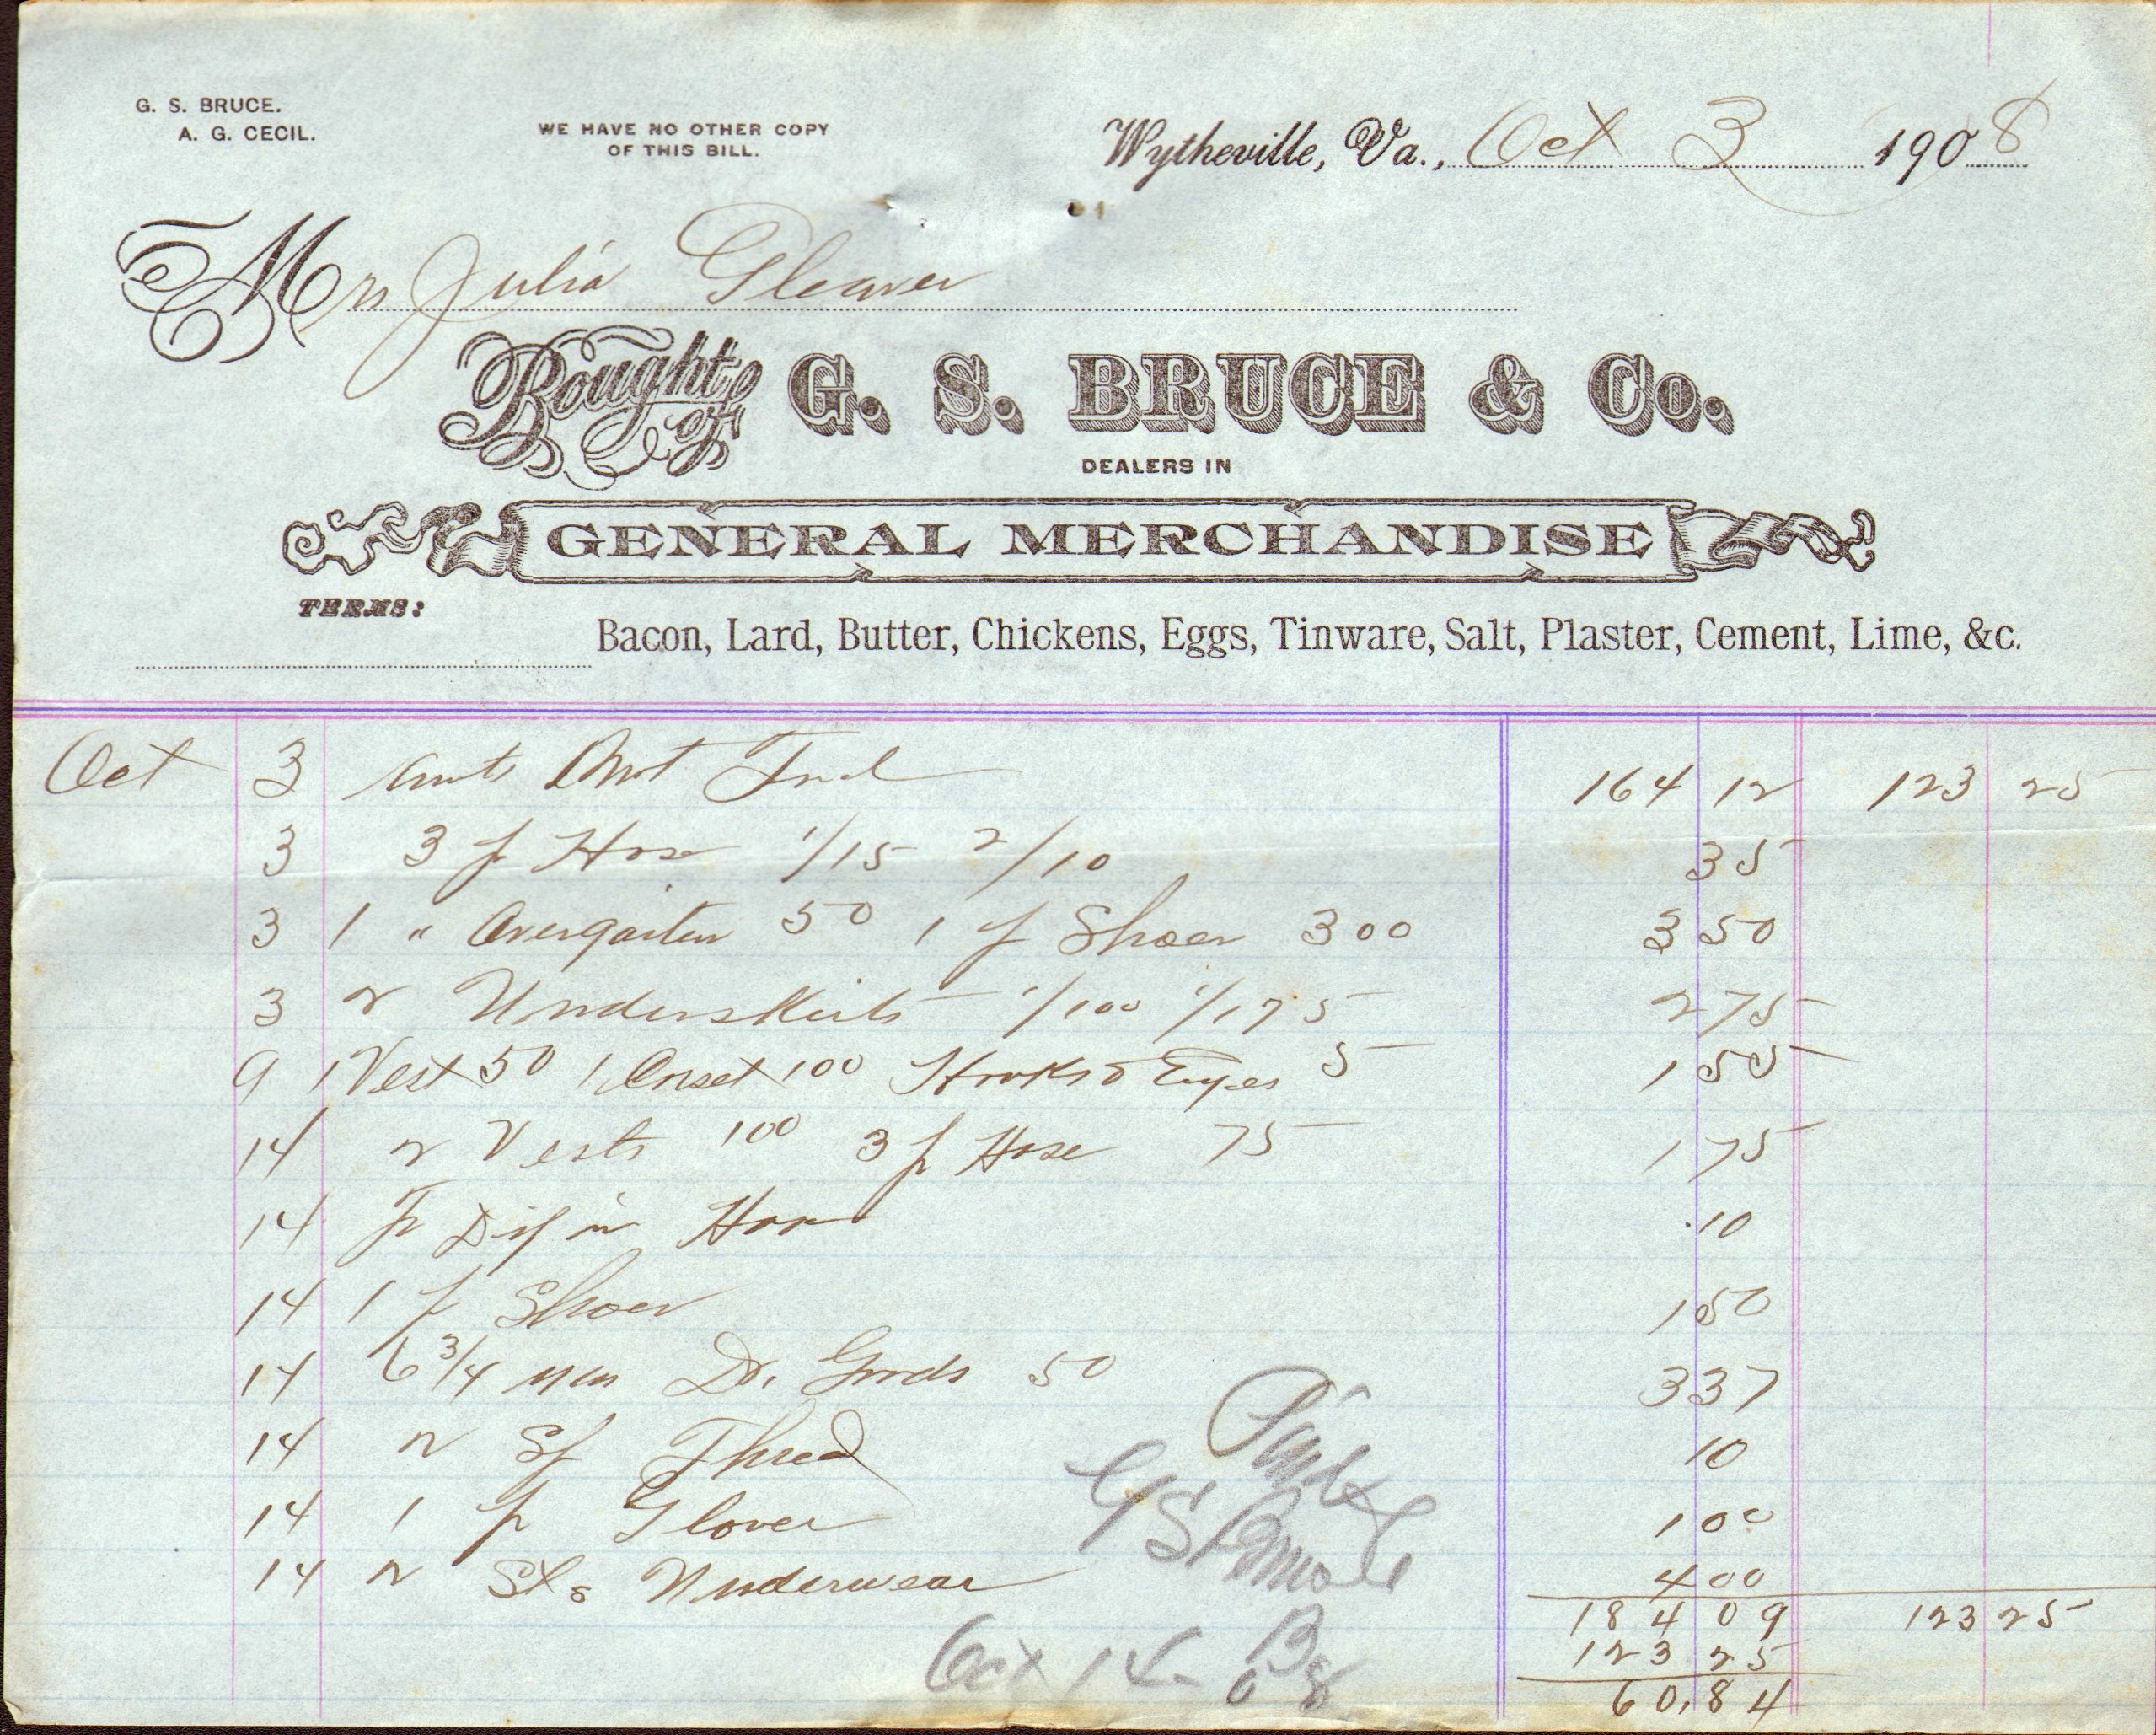 G. S. BRUCE.
A. G. CECIL.
WE HAVE NO OTHER COPY
OF THIS BILL.
Wytheville, Va., Oct 3 1908
Mrs Julia Gleaves
Bought of G. S. BRUCE & Co.
DEALERS IN
GENERAL MERCHANDISE
TERMS:
Bacon, Lard, Butter, Chickens, Eggs, Tinware, Salt, Plaster, Cement, Lime, &c.
Oct 3 Amts 164 12 123 25
3 3 pr Hose 1/15 2/10 35
3 1 " Overgaiters 50 1 pr Shoes 300 3 50
3 2 Underskirts 1/100 1/175 2 75
9 1 Vest 50 1 Corset 100 Hooks & Eyes 5 1 55
14 2 Vests 100 3 pr Hose 75 1 75
14 To Dif in Hose 10
14 1 pr Shoes 1 50
14 6 3/4 yds Dr. Goods 50 3 37
14 2 Sp Thread 10
14 1 pr Gloves 1 00
14 2 Sts Underwear 4 00
184 09 123 25
123 25
60.84
Paid
G S Bruce & Co
Oct 14 - 08